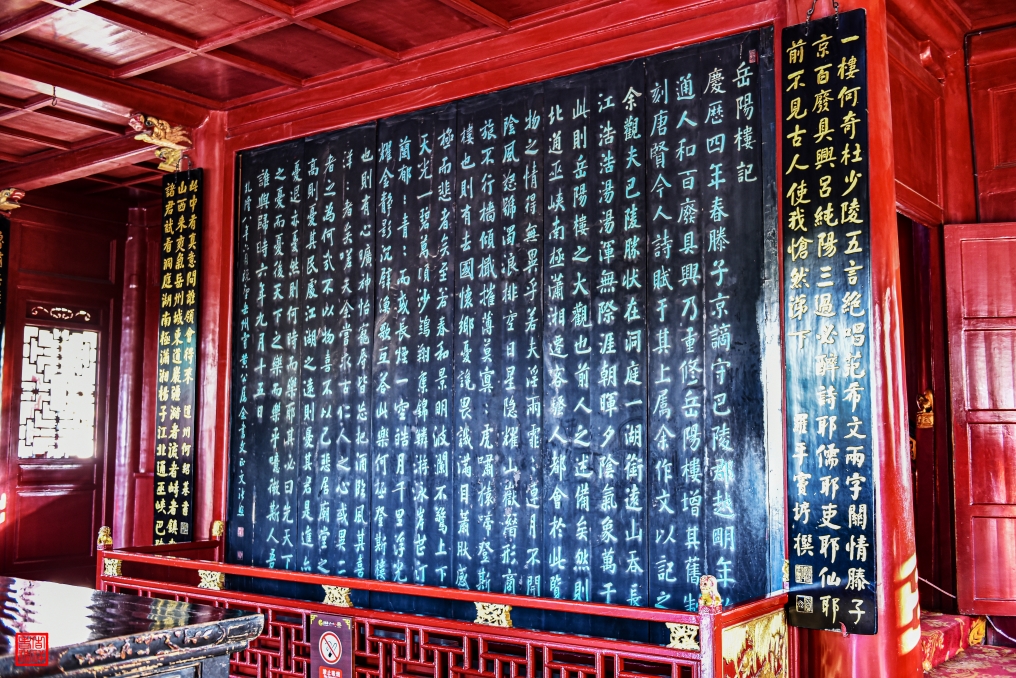 一樓何奇杜少陵五言絕唱范希文兩字關情滕子
京百廢具興呂純陽三過必醉詩耶儒耶吏耶仙耶
前不見古人使我愴然涕下 羅平竇垿撰
岳陽樓記
慶曆四年春滕子京謫守巴陵郡越明年政
通人和百廢具興乃重修岳陽樓增其舊制
刻唐賢今人詩賦于其上屬余作文以記之
余觀夫巴陵勝狀在洞庭一湖銜遠山吞長
江浩浩湯湯渾無際涯朝暉夕陰氣象萬千
此則岳陽樓之大觀也前人之述備矣然則
北通巫峽南極瀟湘遷客騷人都會於此覽
物之情得無異乎若夫淫雨霏:連月不開
陰風怒號濁浪排空日星隱耀山嶽潛形商
旅不行檣傾檝摧薄暮冥:虎嘯猿啼登斯
樓也則有去國懷鄉憂讒畏譏滿目蕭然感
極而悲者矣至若春和景明波瀾不驚上下
天光一碧萬頃沙鷗翔集錦鱗游泳岸芷汀
蘭郁:青:而或長煙一空皓月千里浮光
耀金靜影沉璧漁歌互答此樂何極登斯樓
也則有心曠神怡寵辱皆忘把酒臨風其喜
洋:者矣嗟夫余嘗求古仁人之心或異二
者之為何哉不以物喜不以己悲居廟堂之
高則憂其民處江湖之遠則憂其君是進亦
憂退亦憂然則何時而樂耶其必曰先天下
之憂而憂後天下之樂而樂乎噫微斯人吾
誰與歸時六年九月十五日
諸君試看洞庭湖南極瀟湘揚子江北通巫峽巴
山西來爽氣岳州城東道巖疆瀦者流者峙者鎮
此中有真意問誰領會得來 道州何紹基書